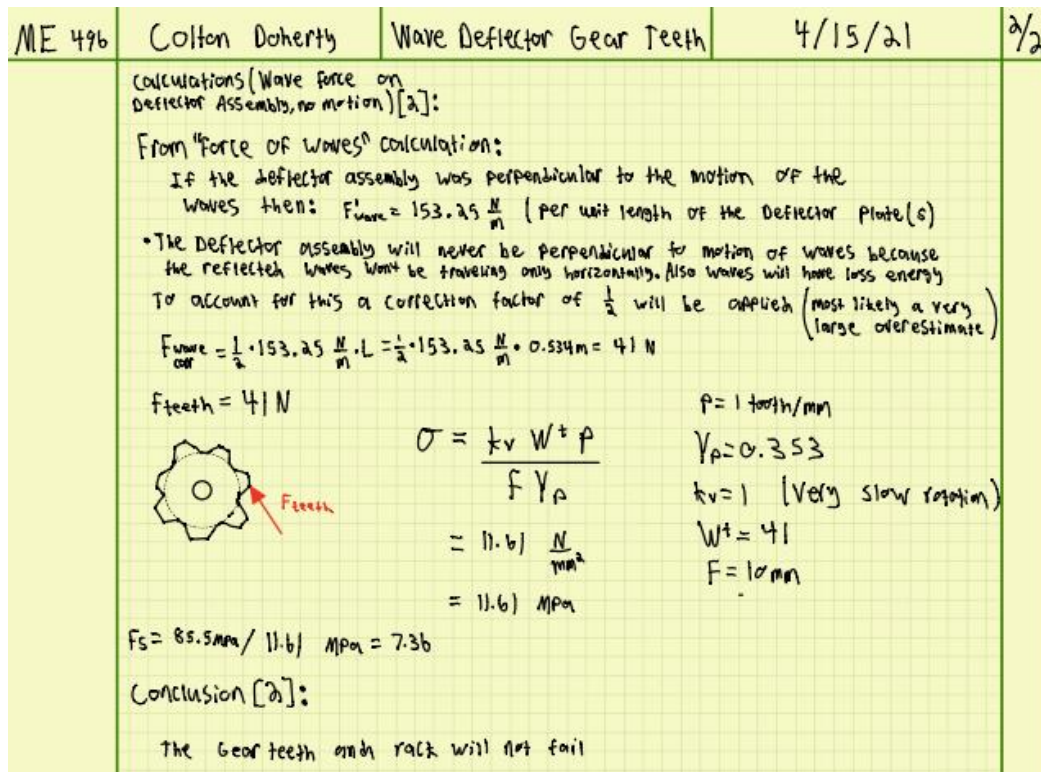 ME 496 Colton Doherty Wave Deflector Gear Teeth 4/15/21 2/2
Calculations (Wave force on
Deflector Assembly, no motion) [2]:
From "Force of waves" calculation:
If the deflector assembly was perpendicular to the motion of the
waves then: F'wave = 153.25 N/m (per unit length of the Deflector Plate(s)
• The Deflector assembly will never be perpendicular to motion of waves because
the reflected waves won't be traveling only horizontally. Also waves will have loss energy
To account for this a correction factor of 1/2 will be applied (most likely a very
large overestimate)
Fwave corr = 1/2 · 153.25 N/m · L = 1/2 · 153.25 N/m · 0.534m = 41 N
Fteeth = 41 N
Fteeth
σ = kv W^t P / F Yp
= 11.61 N/mm²
= 11.61 MPa
P = 1 tooth/mm
Yp = 0.353
kv = 1 (Very slow rotation)
W^t = 41
F = 10 mm
Fs = 85.5 MPa / 11.61 MPa = 7.36
Conclusion [2]:
The Gear teeth and rack will not fail